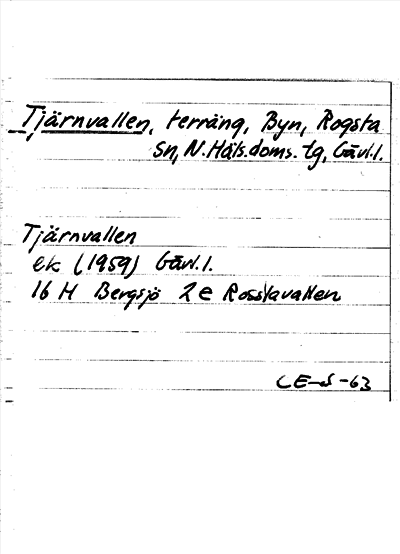 Tjärnvallen, terräng, Byn, Rogsta
sn, N. Häls. doms. tg, Gävl. l.
Tjärnvallen
ek (1959) Gävl. l.
16 H Bergsjö 2 e Rosslavallen
CE-d -63